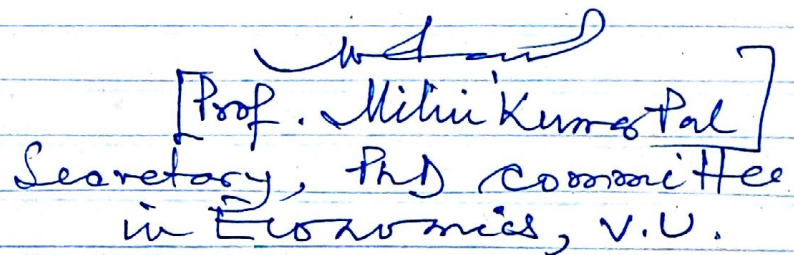 [Prof. Mihir Kumar Pal]
Secretary, PhD committee
in Economics, V.U.